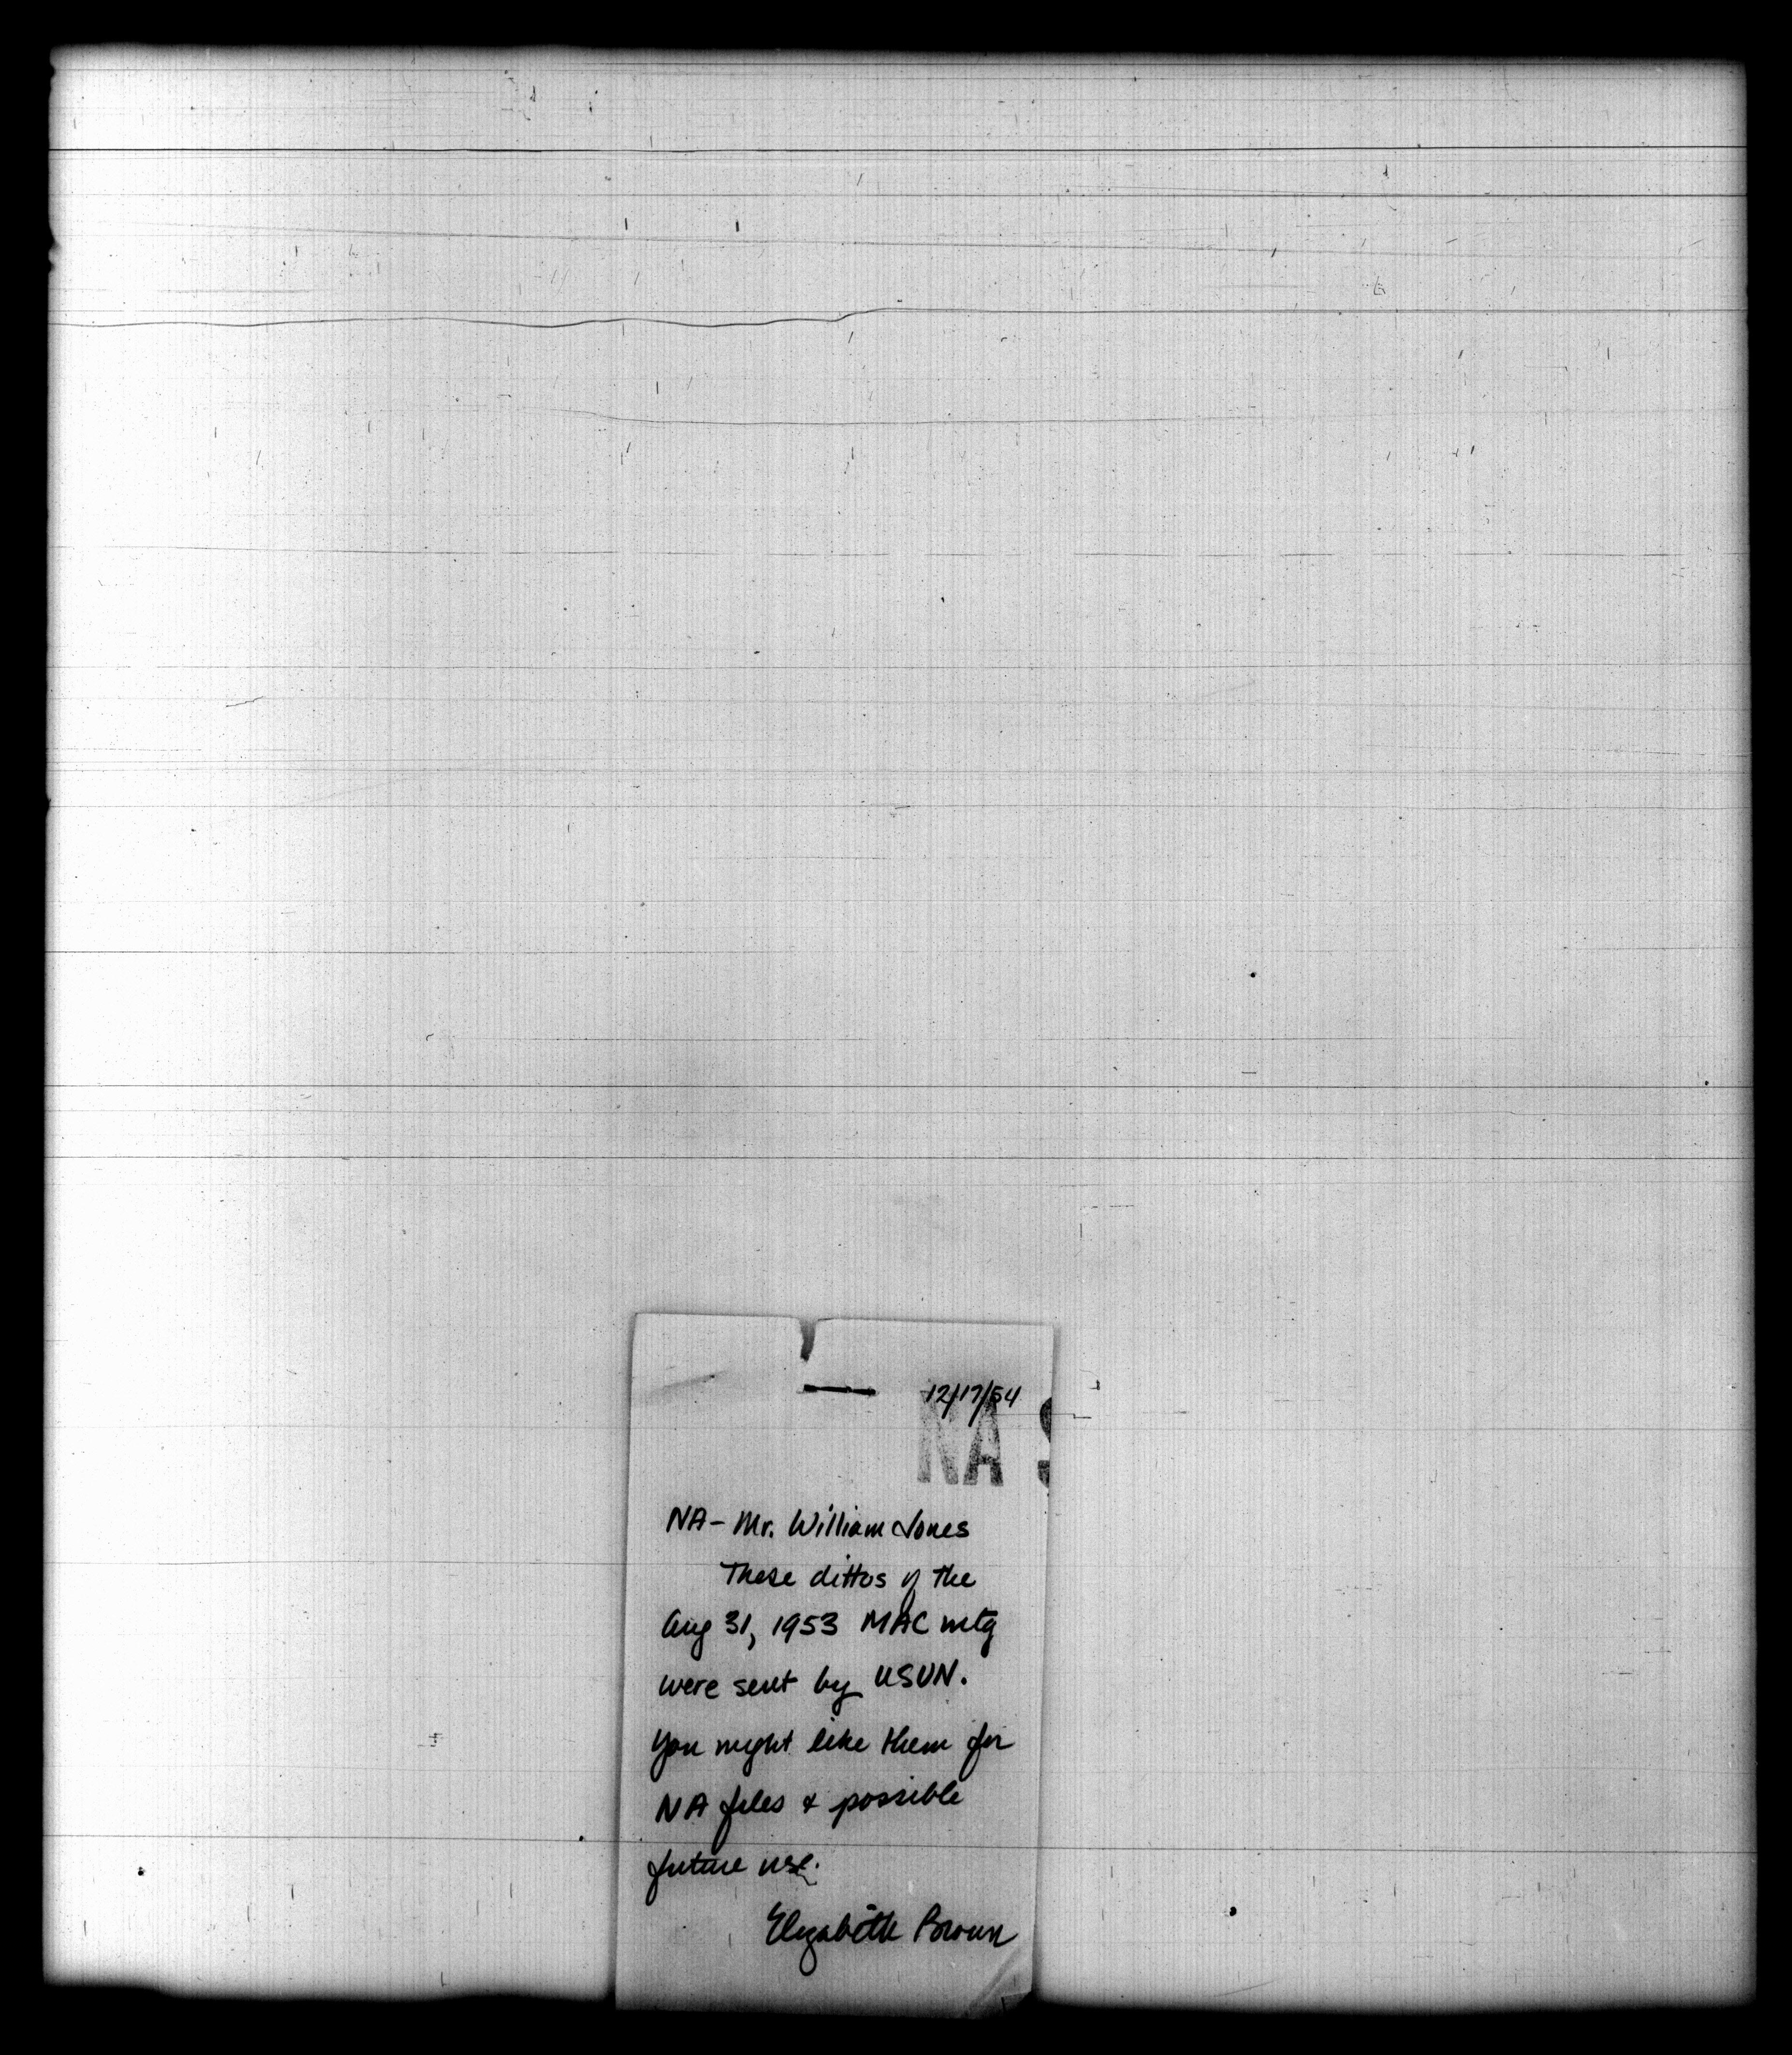 12/17/54
NA S
NA - Mr. William Jones
These dittos of the
Aug 31, 1953 MAC mtg
were sent by USUN.
You might like them for
NA files & possible
future use.
Elizabeth Brown